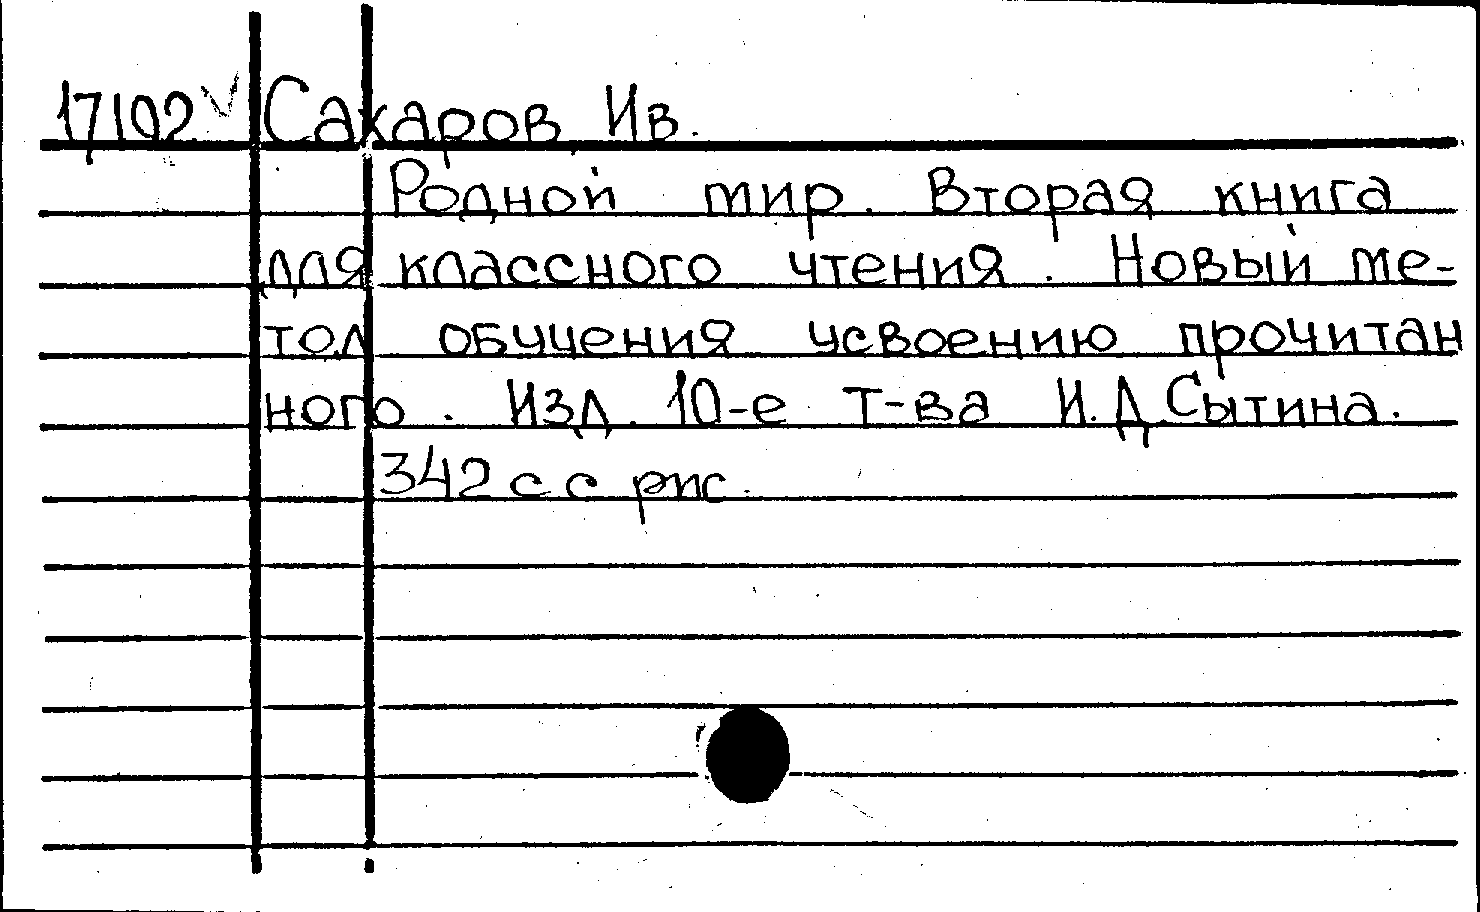 17192 Сахаров, Ив.
Родной мир. Вторая книга
для классного чтения. Новый ме-
тод обучения усвоению прочитан
ного. Изд. 10-е Т-ва И.Д.Сытина.
342 с с рис.